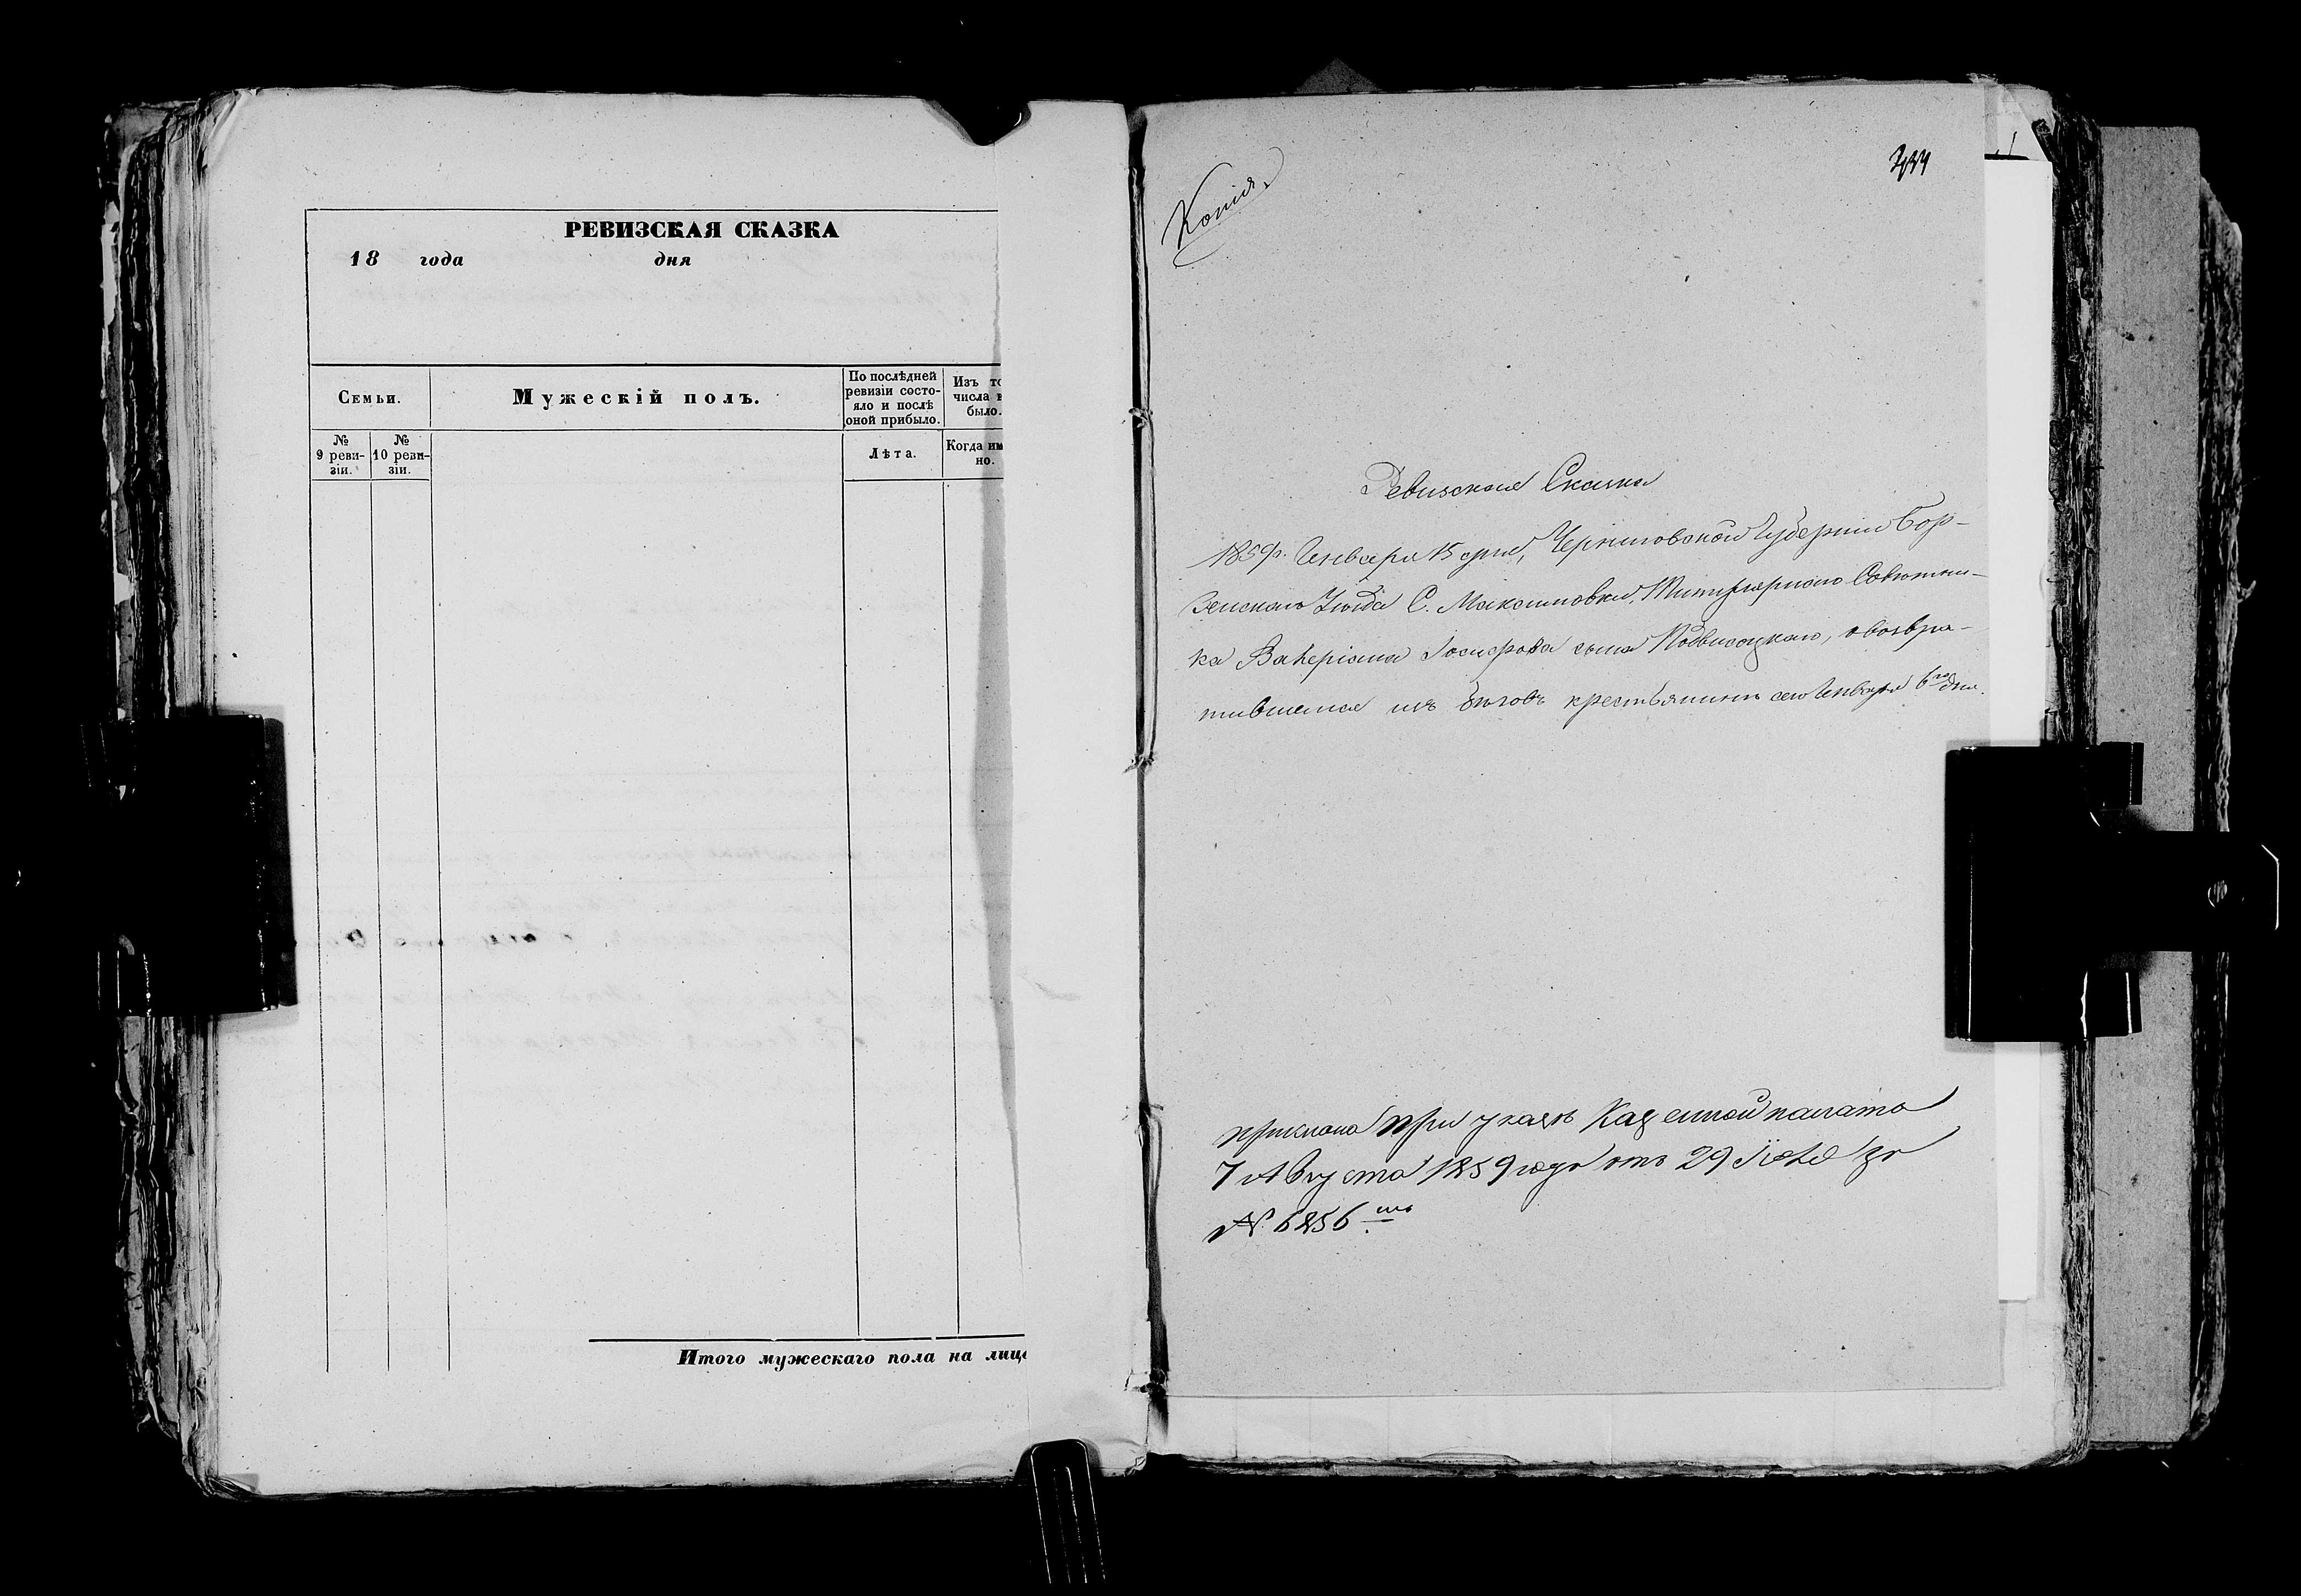 РЕВИЗСКАЯ СКАЗКА
18 года дня
Семьи.
Мужескій полъ.
По послѣдней
ревизіи состо-
яло и послѣ
оной прибыло.
Изъ то
числа в
было.
№
9 реви-
зіи.
№
10 реви-
зіи.
Лѣта.
Когда им
но.
Итого мужескаго пола на лице
Копія
Ревизская Сказка
1859г. Января 15 дня, Черниговской Губерніи Бор-
зенскаго Уѣзда С. Максимовки, Титулярнаго Совѣтни-
ка Валеріана Іосифова сына Подвисоцкаго, о возвра-
тившемся изъ бѣговъ крестьянинѣ сего Января 6го дня.
прислана при указѣ Казенной палаты
7 Августа 1859 года отъ 29 Іюля за
№ 6856 мъ